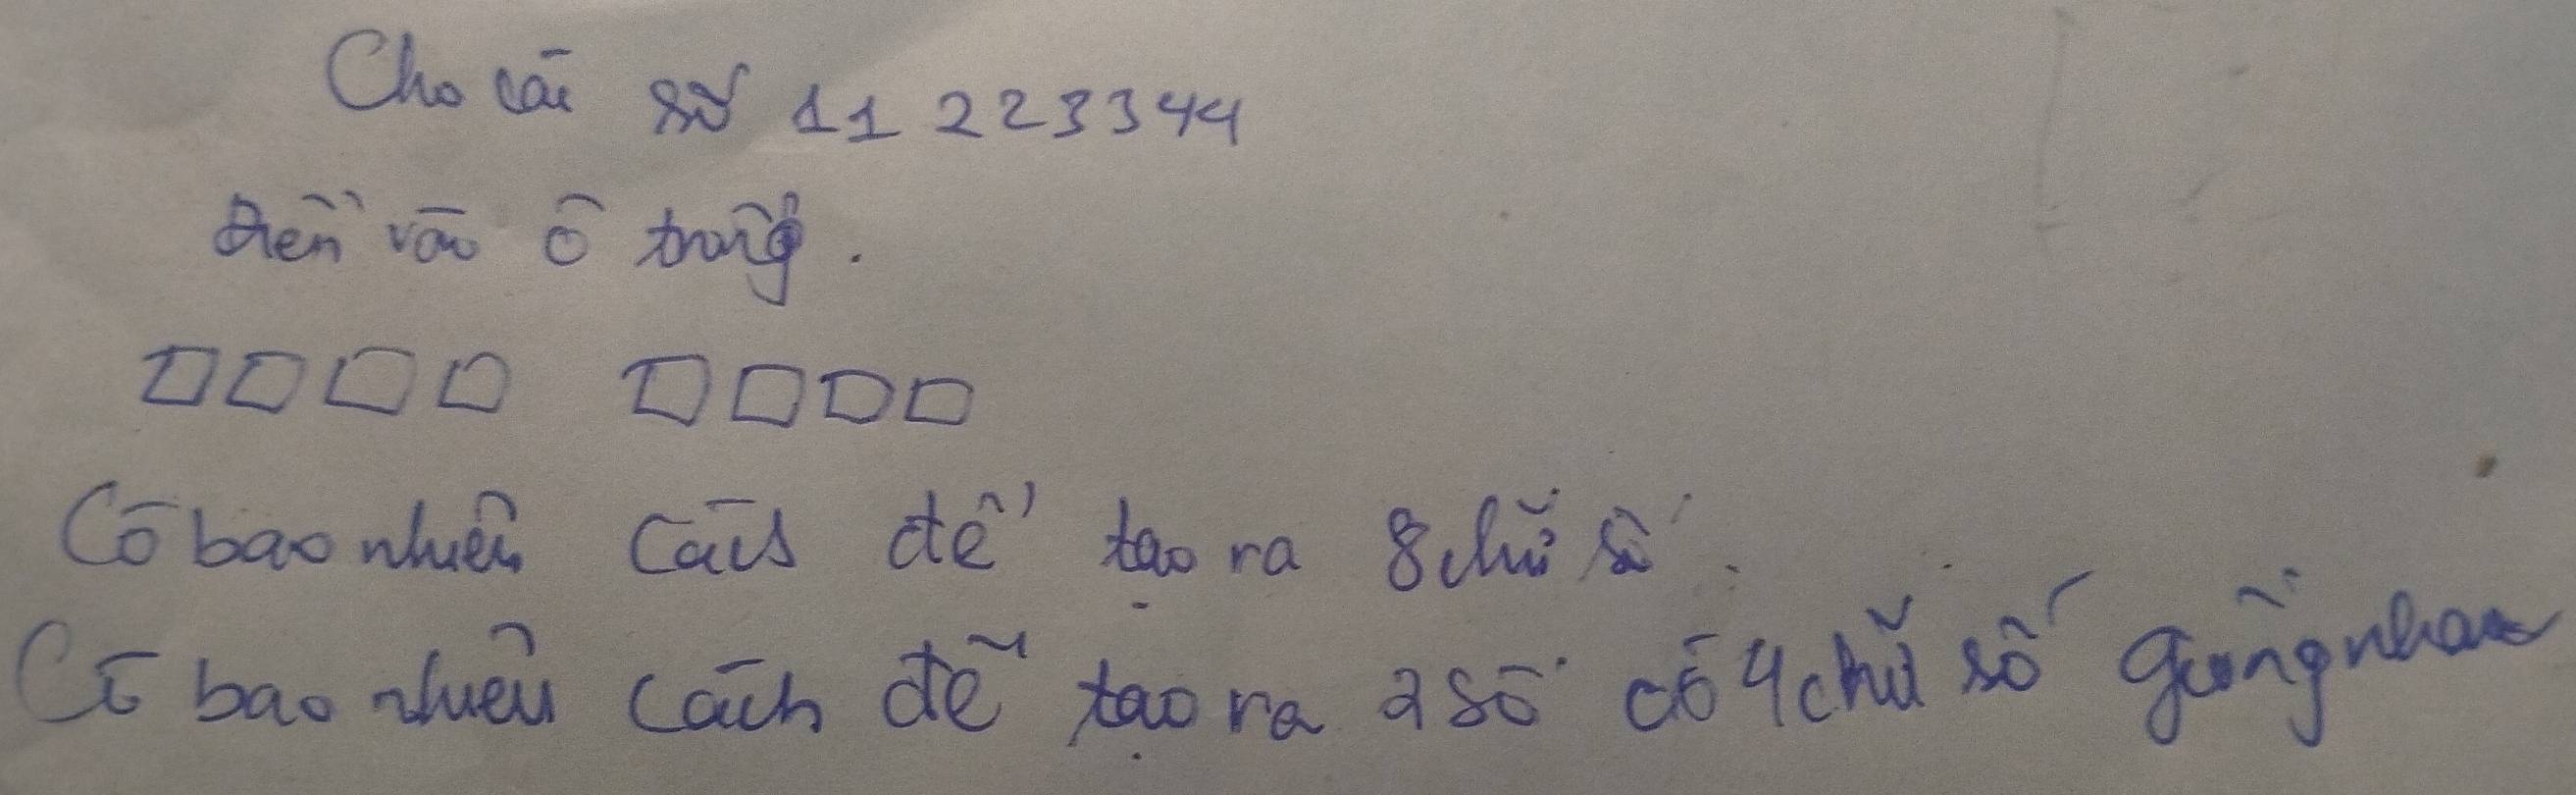 Cho các số 11 223344
điền vào ô trống.
Có bao nhiêu cách để tạo ra 8 chữ số.
Có bao nhiêu cách để tạo ra 2 số có 4 chữ số giống nhau